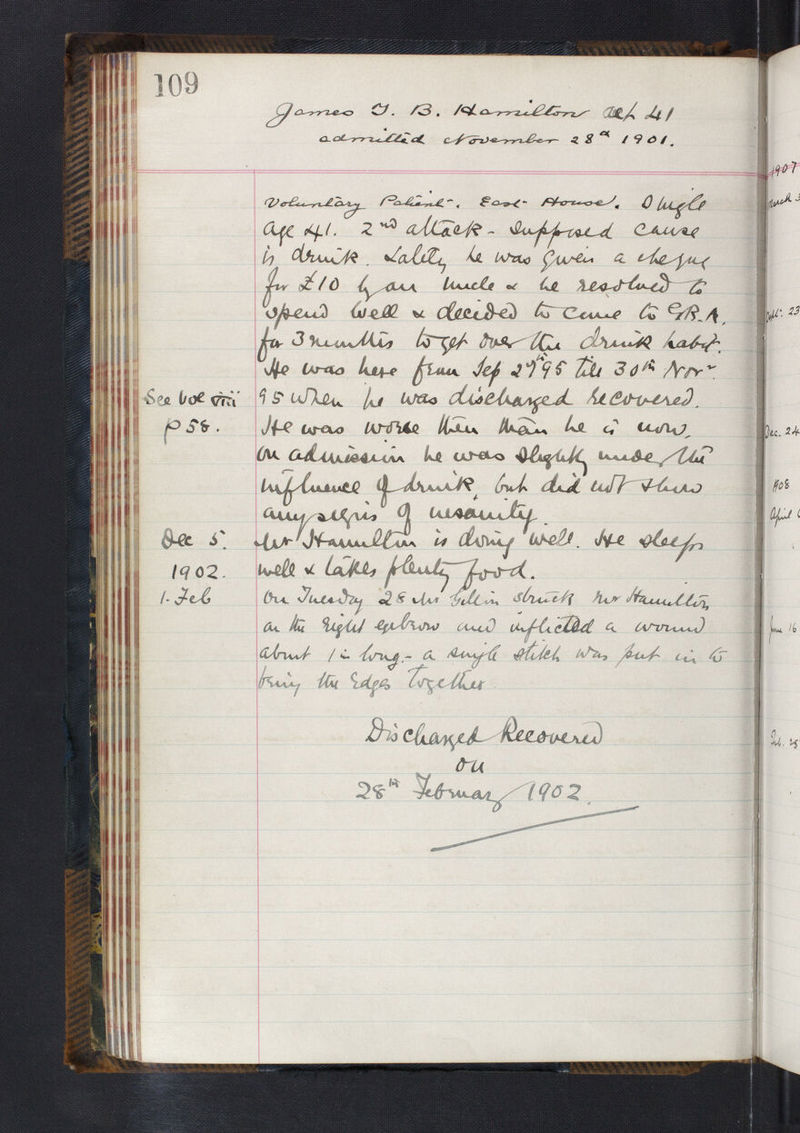 109
James T. B. Hamilton aet 41
admitted November 28th 1901.
Voluntary Patient. East House. Single
age 41. 2nd attack - Supposed cause
is drink. Lately he was given a cheque
for £10 by an uncle & he resolved to
spend well & decided to come to G.R.A.
for 3 months to get over the drink habit.
He was here from Sep 27th 95 till 30th Novr
See vol viii p 58.
95 when he was discharged recovered.
He was worse then than he is now.
On admission he was slightly under the
influence of drink, but did not show
any signs of insanity.
Dec 5. Mr Hamilton is doing well. He sleeps
1902. well & takes plenty food.
1. Feb On Tuesday 28 Mr struck Mr Hamilton
on the right eyebrow and inflicted a wound
about 1 in long - a single stitch was put in to
bring the edges together
Discharged Recovered
on
28th February 1902.
1907
23
Dec. 24
1908
April
June 16
Feb. 25